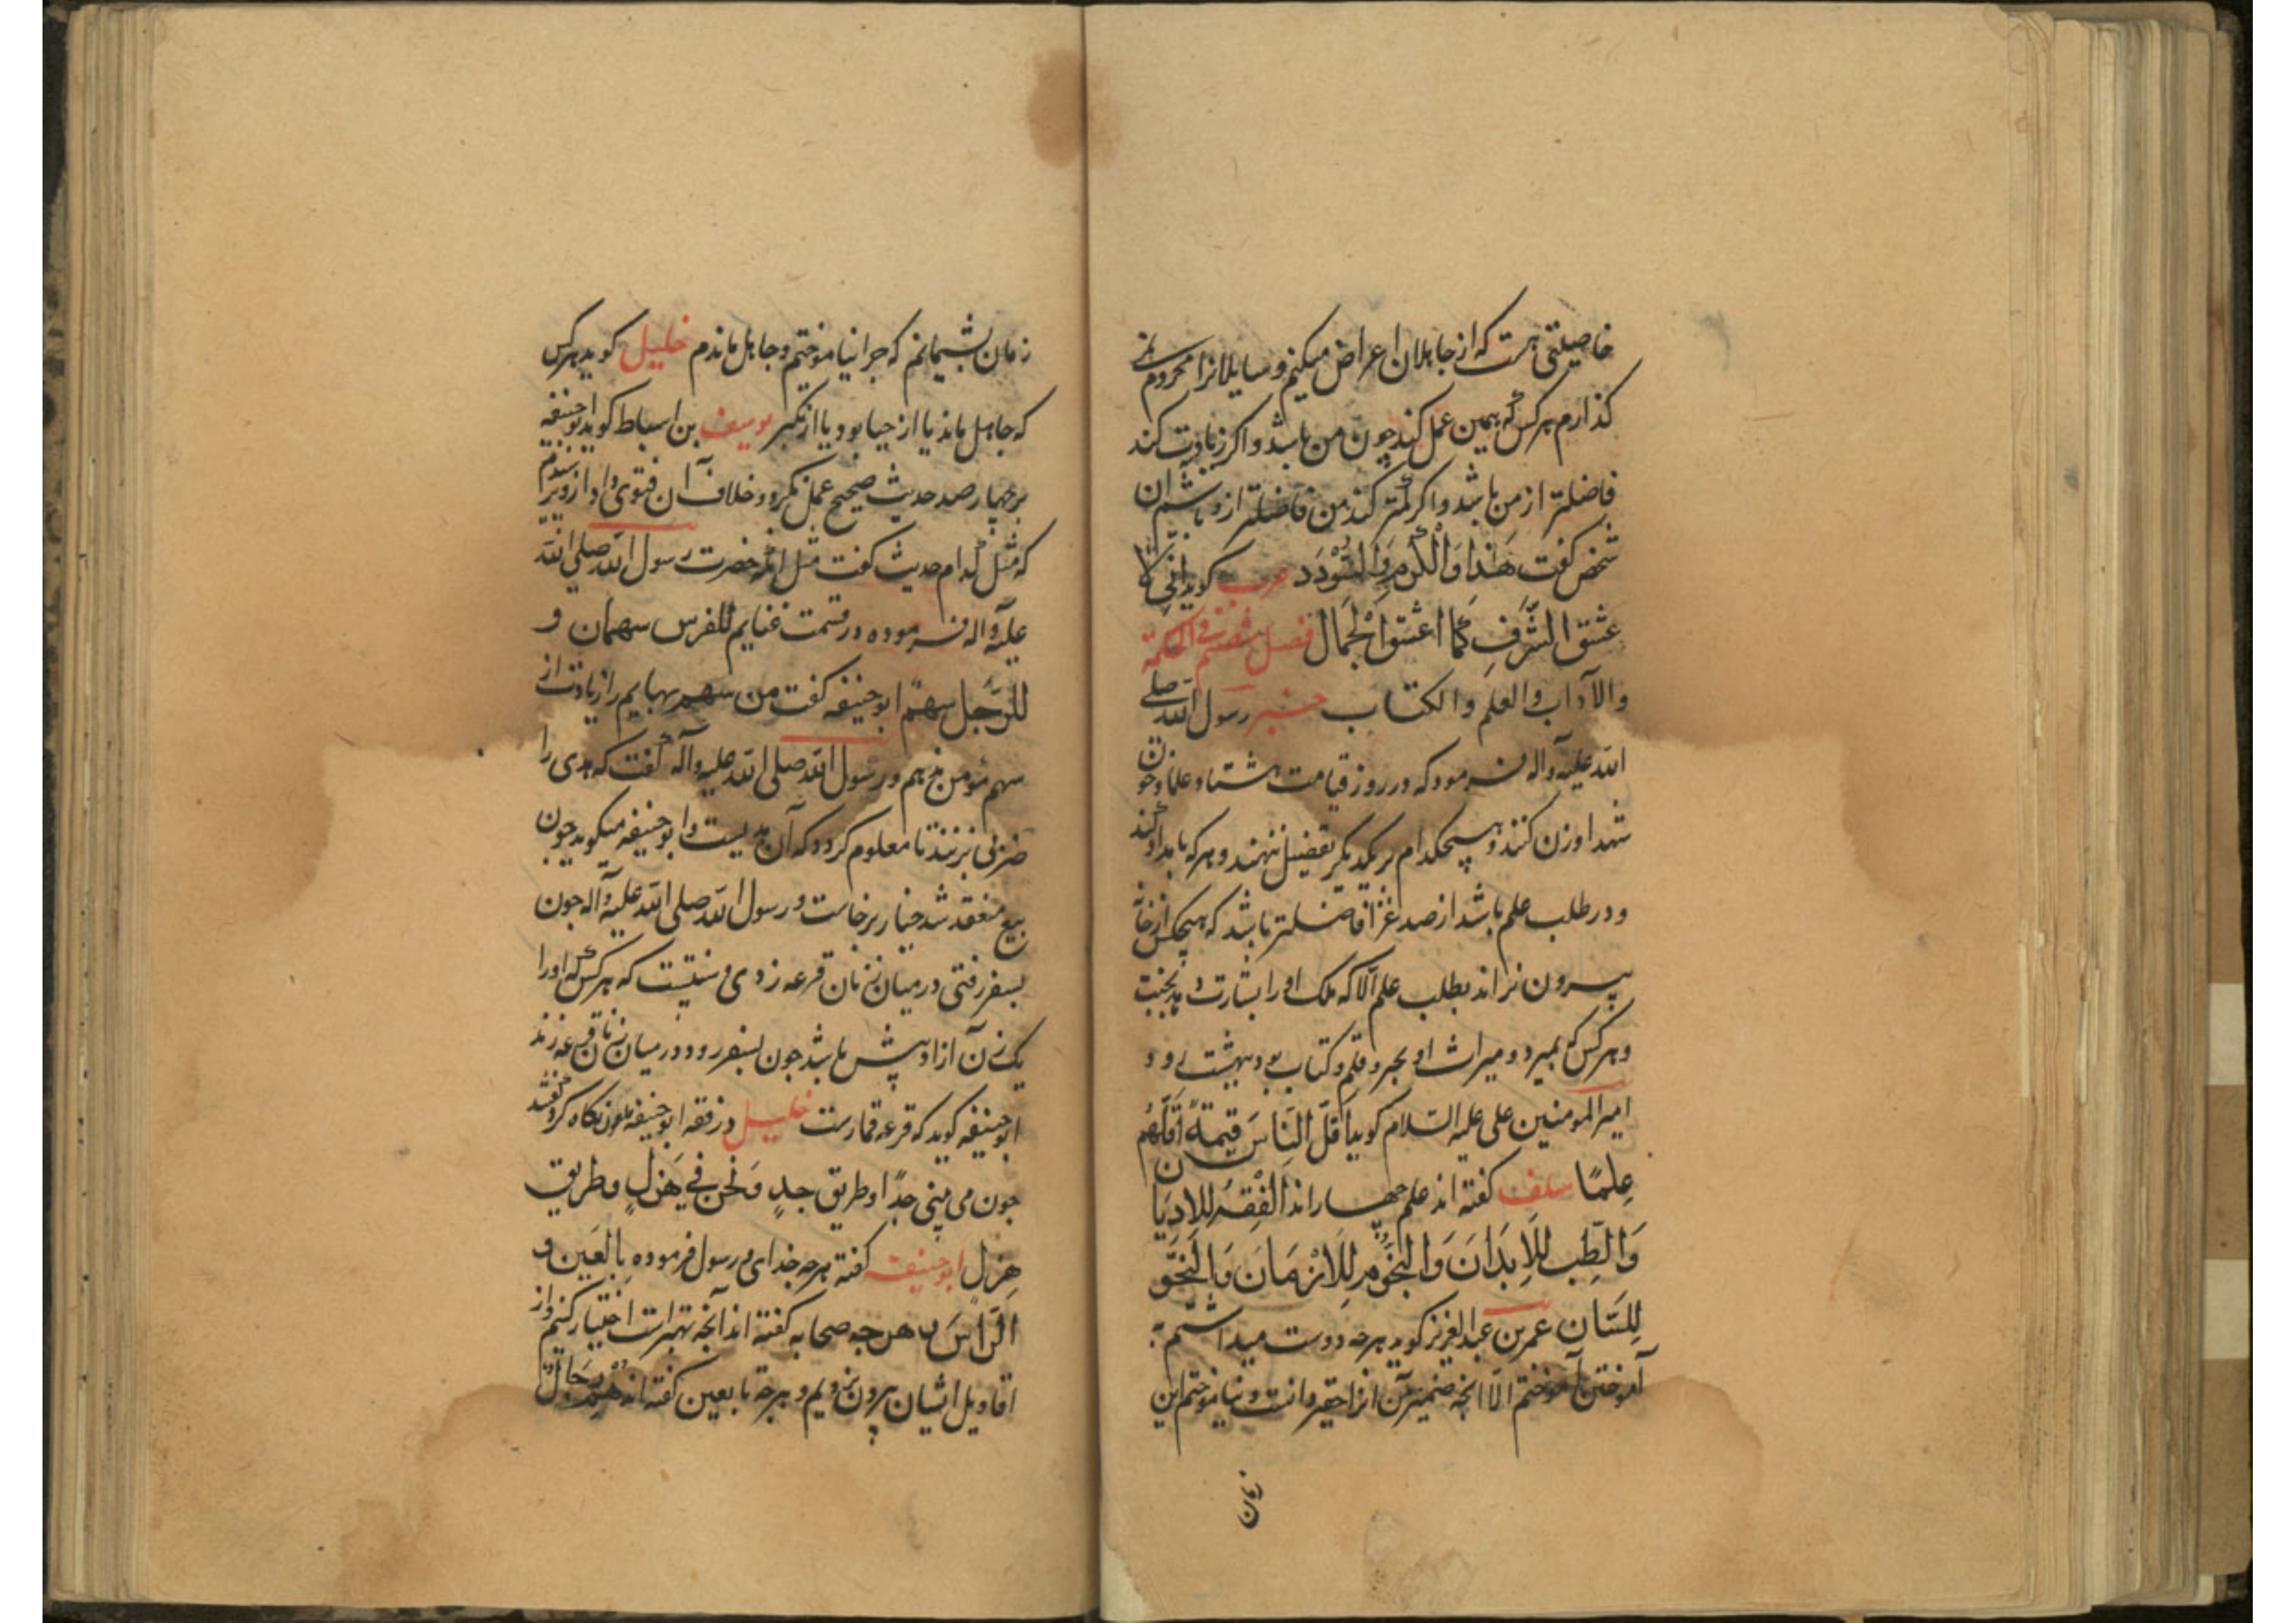 خاصیتی هست که از جاهلان اعراض میکنم و سایلانرا محروم نمی
کذارم هر کس که بهمین عمل کند چون من باشد و اکر زیادت کند
فاضلتر از من باشد و اکر کمتر کند من فاضلتر ازو باشم آن
شخص کفت هَذا وَالْكَرَمِ وَالسُّودَد عرب کوید انی
عشق الشَّرَفِ كَمَا اعشق الْجَمَال فصل ششم فی الحکمة
والآداب والعلم والکتاب خبر رسول الله صلی
الله علیه وآله فرمود که در روز قیامت مداد علما و خون
شهدا وزن کنند و هیچکدام بر یکدیکر تفضیل ننهند و هر که بامداد کند
و در طلب علم باشد از صد غزا فاضلتر باشد که هیچکس از خانه
بیرون نراند بطلب علم الا که ملک او را بشارت دهد بجنت
و هر کس که بمیرد و میراث او محبر و قلم و کتاب بود بهشت رود
امیر المومنین علی علیه السلام کوید اَقَلُّ النَّاسَ قیمَةً اَقَلُّهُم
عِلمًا سلف کفته اند علم چهاراند اَلْفِقْهُ لِلاَدیان
وَالطِّب لِلاَبدَانَ وَالنُّجُوم لِلاَزمَان وَالنَّحو
لِلسَان عمر بن عبد العزیز کوید هر چه دوست میداشتم
آموختن بیاموختم الا آنچه ضمیر من آنرا حقیر دانست و نیاموختم این
زمان
زمان پشیمانم که چرا نیاموختم و جاهل ماندم خلیل کوید هر کس
که جاهل ماند یا از حیا بود یا از تکبر یوسف بن اسباط کوید ابو حنیفه
بر چهار صد حدیث صحیح عمل نکرد و خلاف آن فتوی داد ازو پرسیدم
که مثل کدام حدیث کفت مثل آنکه حضرت رسول الله صلی الله
علیه وآله فرموده در قسمت غنایم للفرس سهمان و
للرَّجل سهمٌ ابو حنیفه کفت من سهم بهایم را زیادت از
سهم مؤمن ندهم و رسول الله صلی الله علیه وآله کفت که هدی را
ضربی بزنند تا معلوم کردد که آن هدیست و ابو حنیفه میکوید چون
بیع منعقد شد خیار برخاست و رسول الله صلی الله علیه وآله چون
بسفر رفتی در میان زنان قرعه زدی و سنتیست که هر کس که او را
یک زن آزاد بیش باشد چون بسفر رود در میان زنان قرعه زند
ابو حنیفه کوید که قرعه قمارست خلیل در فقه ابو حنیفه نکاه کرد کفتند
چون می بینی جدًا و طریق جدٍ وَنَحن فی هَزلٍ و طریق
هزل ابو حنیفه کفته هر چه خدای و رسول فرموده بالعَین و
الرّاسَ و هرچه صحابه کفته اند آنچه بهتر است اختیار کنیم و از
اقاویل ایشان بیرون نرویم و هر چه تابعین کفته اند هُم رِجَالٌ